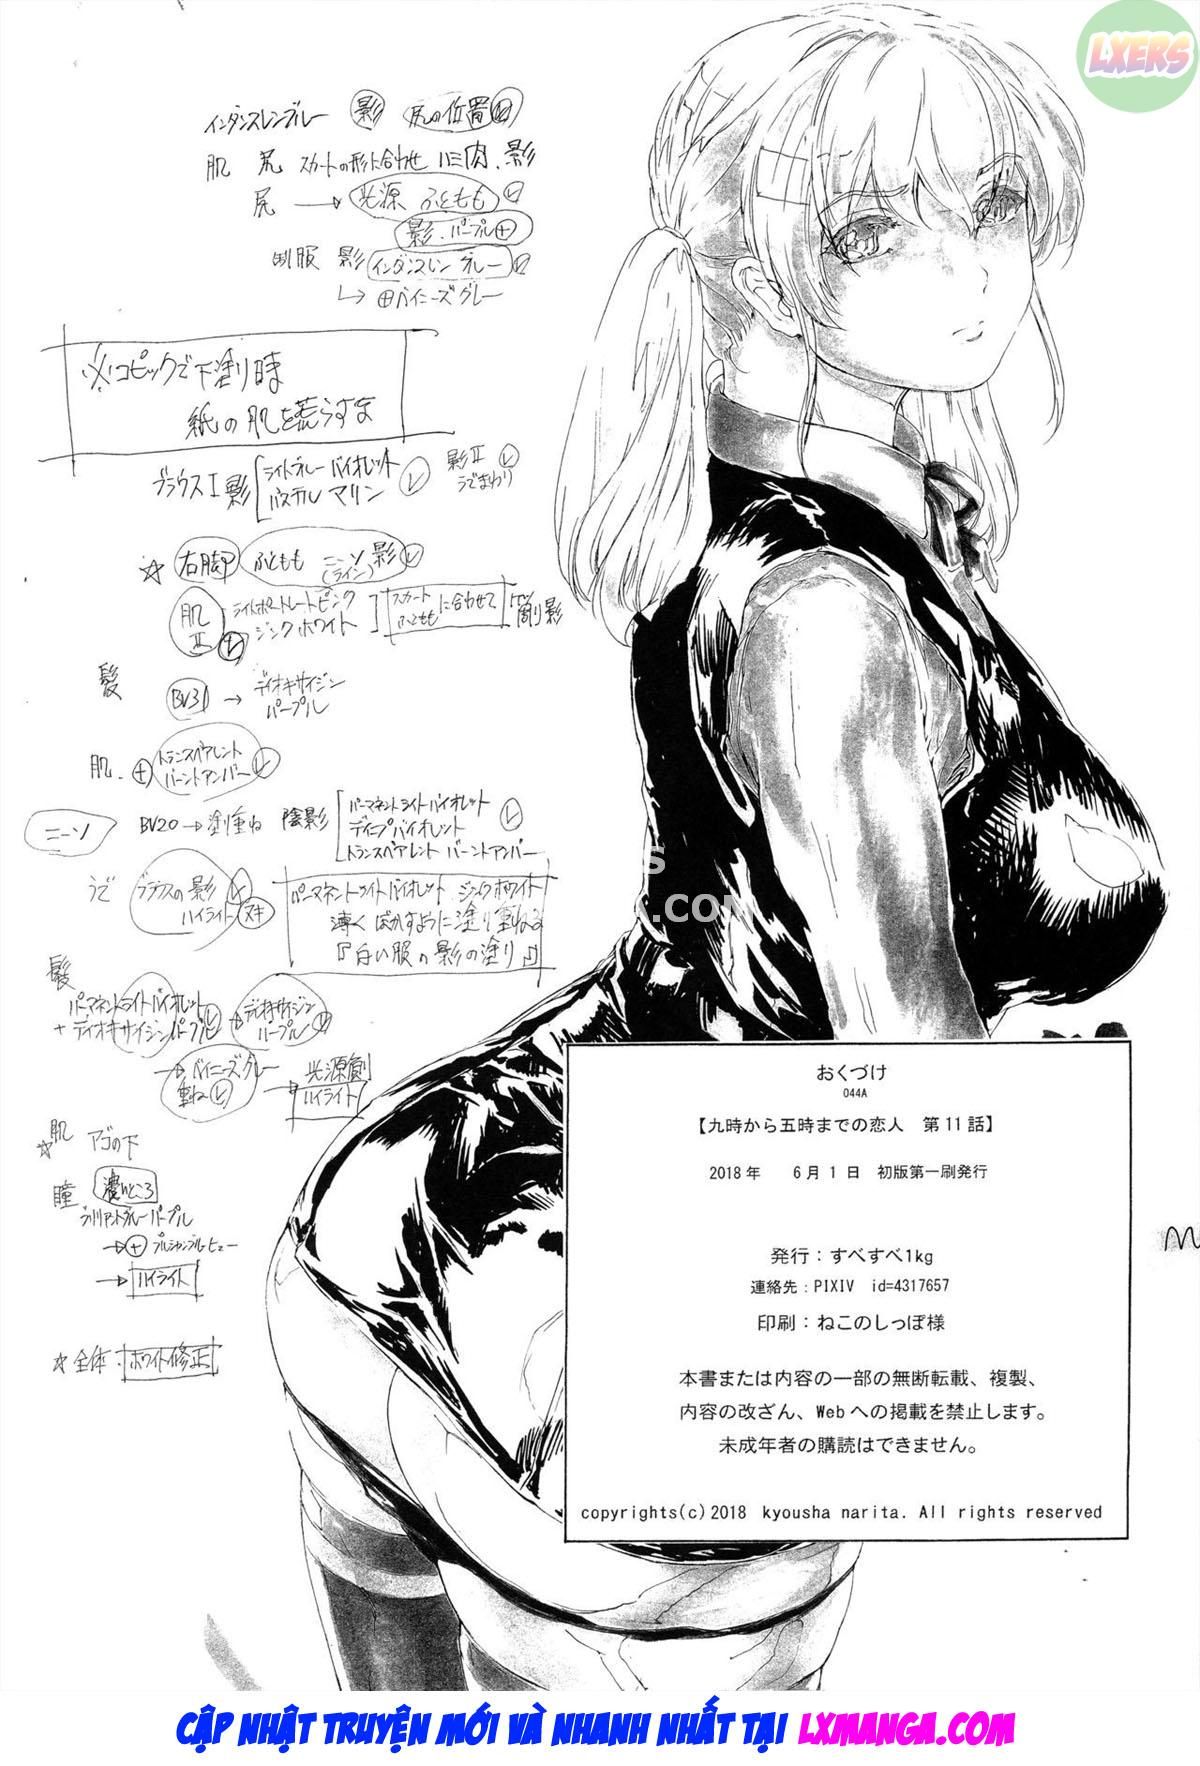 LXERS
インダンスレンブルー 影 尻の位置
肌 尻 スカートの形ト合わせ ハミ肉、影
尻 → 光源 ふともも レ
影・パープル ＋
制服 影 インダンスレン ブルー レ
↳ ⊕ ペイニーズグレー
※コピックで下塗り時
紙の肌を荒らすな
ブラウスI影 ライトブルーバイオレット
パステルマリン レ
影Ⅱ レ
うでまわり
☆ 右脚 ふともも ニーソ 影 レ
(ライン)
肌Ⅱ レ ライトポートレートピンク
ジンクホワイト
スカート
ふともも に合わせて
削り影
髪 BV31 → ディオキサイジン
パープル
肌・⊕ トランスペアレント
バーントアンバー レ
ニーソ BV20→塗り重ね 陰影 パーマネントライトバイオレット
ディープバイオレット レ
トランスペアレント バーントアンバー
うで ブラウスの影 レ
ハイライト
パーマネントライトバイオレット ジンクホワイト
薄くぼかすように塗り重ねる
『白い服の影の塗り』
髪
パーマネントライトバイオレット
+ディオキサイジンパープル レ
→ディオキサイジン
パープル
→ペイニーズグレー
重ね レ
光源側
→ハイライト
☆肌 アゴの下
瞳 濃いところ
ブリリアントブルーパープル
→⊕ プルシャンブルーヒュー
→ハイライト
☆全体 ホワイト修正
.COM
おくづけ
044A
【九時から五時までの恋人 第11話】
2018年 6月1日 初版第一刷発行
発行：すべすべ1kg
連絡先：PIXIV id=4317657
印刷：ねこのしっぽ様
本書または内容の一部の無断転載、複製、
内容の改ざん、Webへの掲載を禁止します。
未成年者の購読はできません。
copyrights(c)2018 kyousha narita. All rights reserved
CẬP NHẬT TRUYỆN MỚI VÀ NHANH NHẤT TẠI LXMANGA.COM